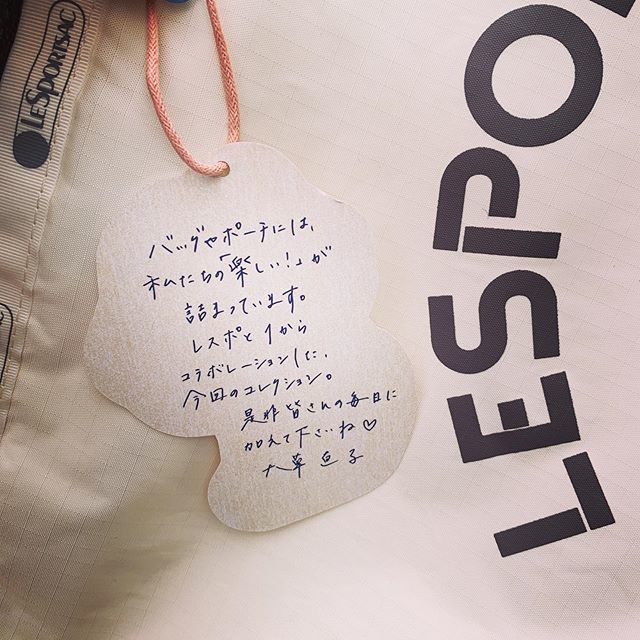 LESPORTSAC
バッグやポーチには、
私たちの「楽しい!」が
詰まっています。
レスポと1から
コラボレーションした、
今回のコレクション。
是非皆さんの毎日に
加えて下さいね♡
大草直子
LESPO